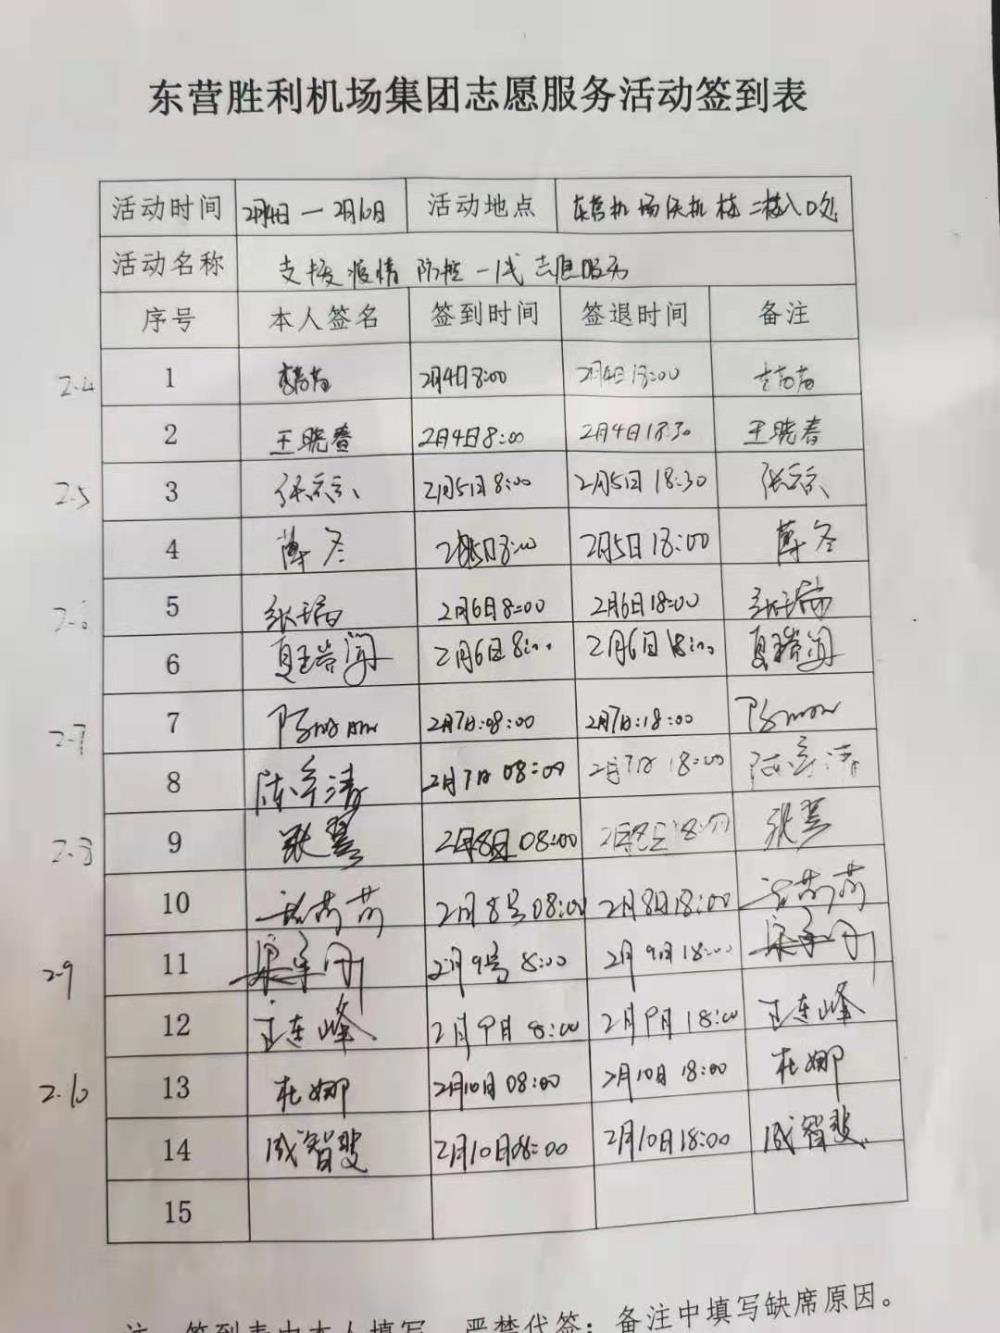 东营胜利机场集团志愿服务活动签到表
活动时间 2月4日一2月10日 活动地点 东营机场候机楼二楼入口处
活动名称 支援疫情防控一线志愿服务
序号 本人签名 签到时间 签退时间 备注
2.4 1 2月4日8:00 2月4日18:00
2 王晓春 2月4日8:00 2月4日18:30 王晓春
2.5 3 张京京 2月5日8:00 2月5日18:30 张京京
4 薄冬 2月5日8:00 2月5日18:00 薄冬
2.6 5 2月6日8:00 2月6日18:00
6 夏瑞阁 2月6日8:00 2月6日18:00 夏瑞阁
2.7 7 2月7日:08:00 2月7日:18:00
8 2月7日08:00 2月7日18:00
2.8 9 张翼 2月8日08:00 2月8日18:00 张翼
10 2月8号08:00 2月8日18:00
2.9 11 2月9号8:00 2月9日18:00
12 王连峰 2月9日8:00 2月9日18:00 王连峰
2.10 13 杜娜 2月10日08:00 2月10日18:00 杜娜
14 成智斐 2月10日08:00 2月10日18:00 成智斐
15
注：签到表由本人填写，严禁代签；备注中填写缺席原因。